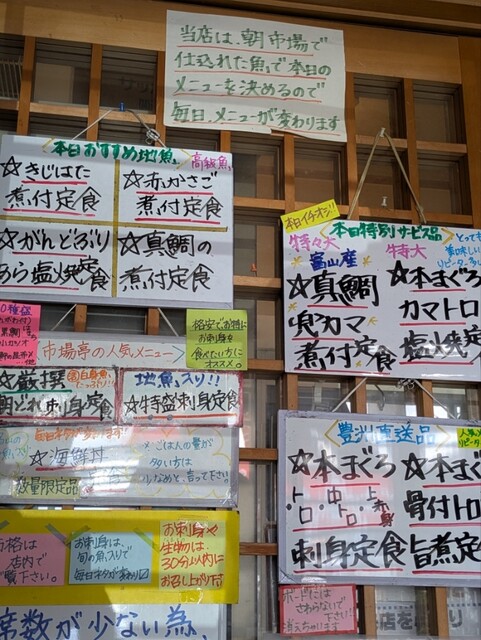 当店は、朝市場で
仕込れた魚で本日の
メニューを決めるので
毎日、メニューが変わります
本日おすすめ地魚
高級魚
☆きじはた
煮付定食
☆赤かさご
煮付定食
☆がんどぶり
あら塩焼定食
☆真鯛の
煮付定食
本日イチオシ!!
本日特別サービス品
特々大
富山産
☆真鯛
煮付定食
特大
☆本まぐろ
カマトロ
塩焼定
とっても
美味しい
市場亭の人気メニュー
格安でお特に
お刺身を
食べたい方に
オススメ。
☆厳撰
朝どれ刺身定食
地魚入り!!
☆特盛刺身定食
毎日ネタが変わります
☆海鮮丼
数量限定品
※ごはんの量が
多い方は
少なめと、言って下さい。
豊洲直送品
☆本まぐろ
・トロ
・中トロ
・上赤身
刺身定食
☆本まぐ
骨付トロ
旨煮定
価格は
店内で
ご覧下さい。
お刺身は、
旬の魚入りで
毎日ネタが変わり
お刺身や
生ものは、
30分以内に
お召し上がり下
席数が少ない為、
ボードには
さわらないで
下さい!
消えちゃいます